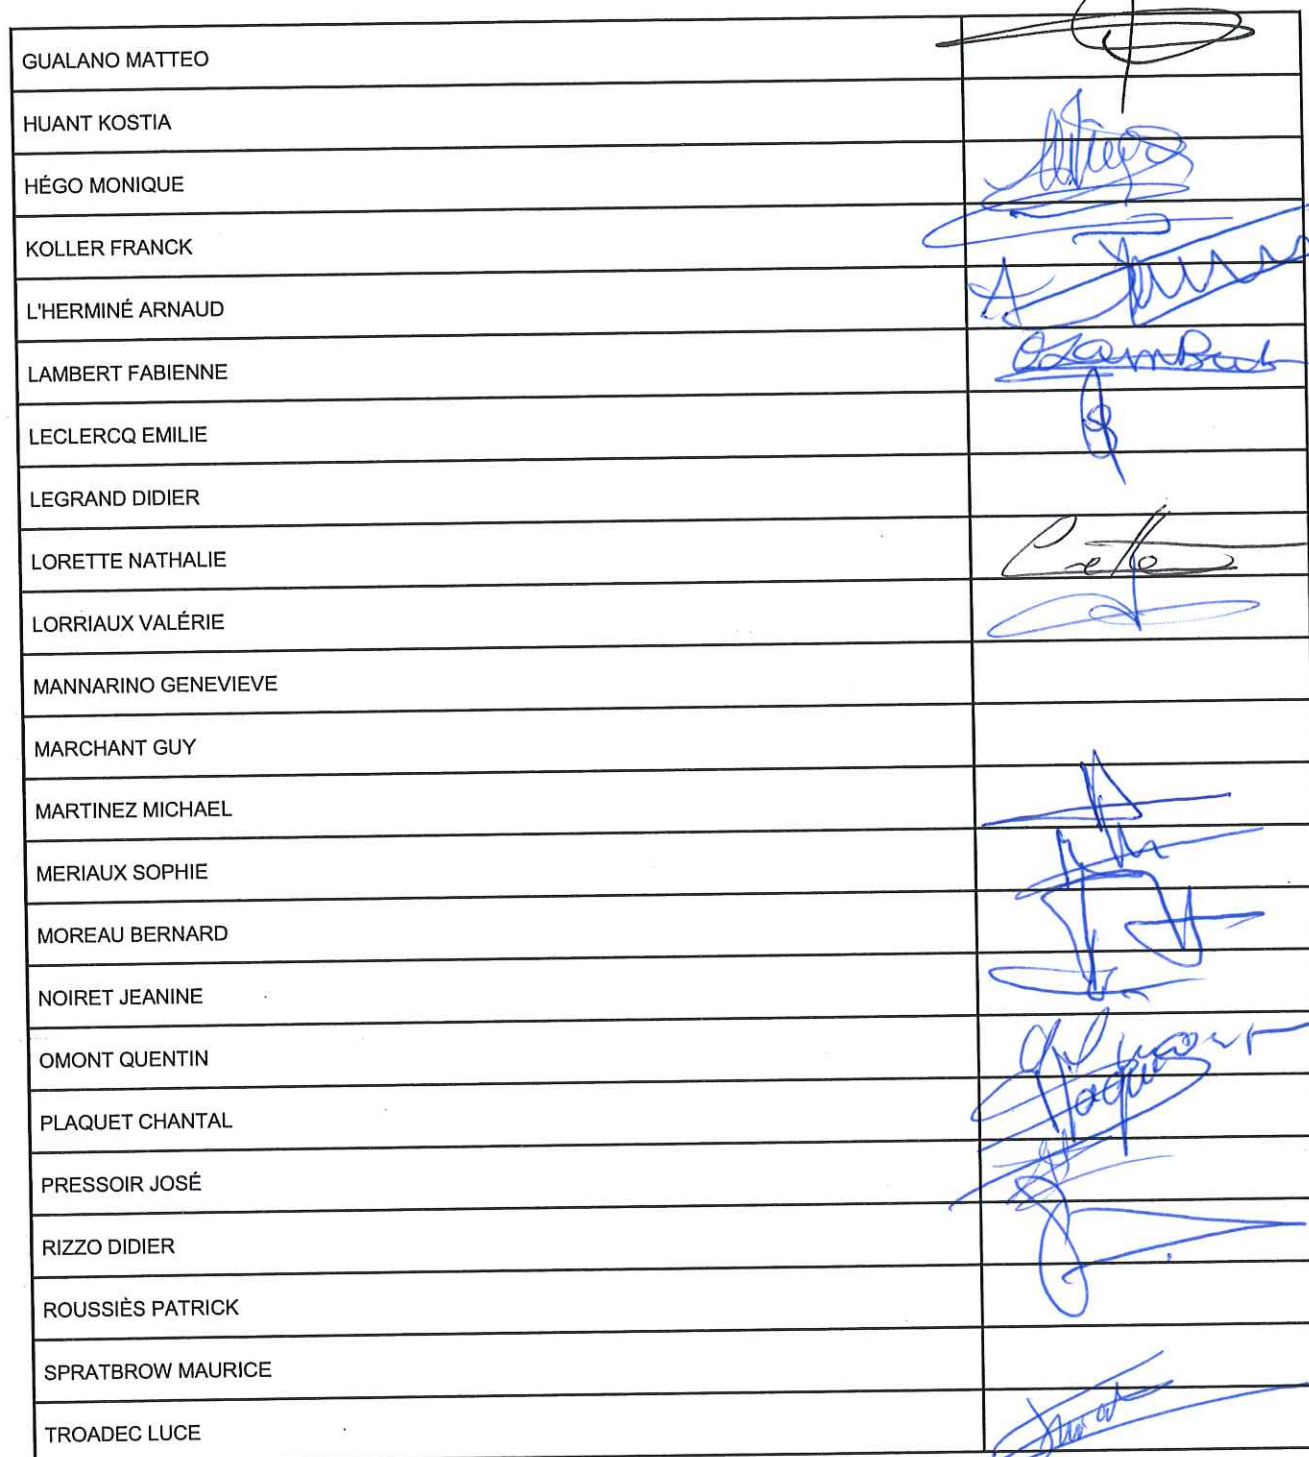 GUALANO MATTEO
HUANT KOSTIA
HÉGO MONIQUE
KOLLER FRANCK
L'HERMINÉ ARNAUD
LAMBERT FABIENNE
LECLERCQ EMILIE
LEGRAND DIDIER
LORETTE NATHALIE
LORRIAUX VALÉRIE
MANNARINO GENEVIEVE
MARCHANT GUY
MARTINEZ MICHAEL
MERIAUX SOPHIE
MOREAU BERNARD
NOIRET JEANINE
OMONT QUENTIN
PLAQUET CHANTAL
PRESSOIR JOSÉ
RIZZO DIDIER
ROUSSIÈS PATRICK
SPRATBROW MAURICE
TROADEC LUCE